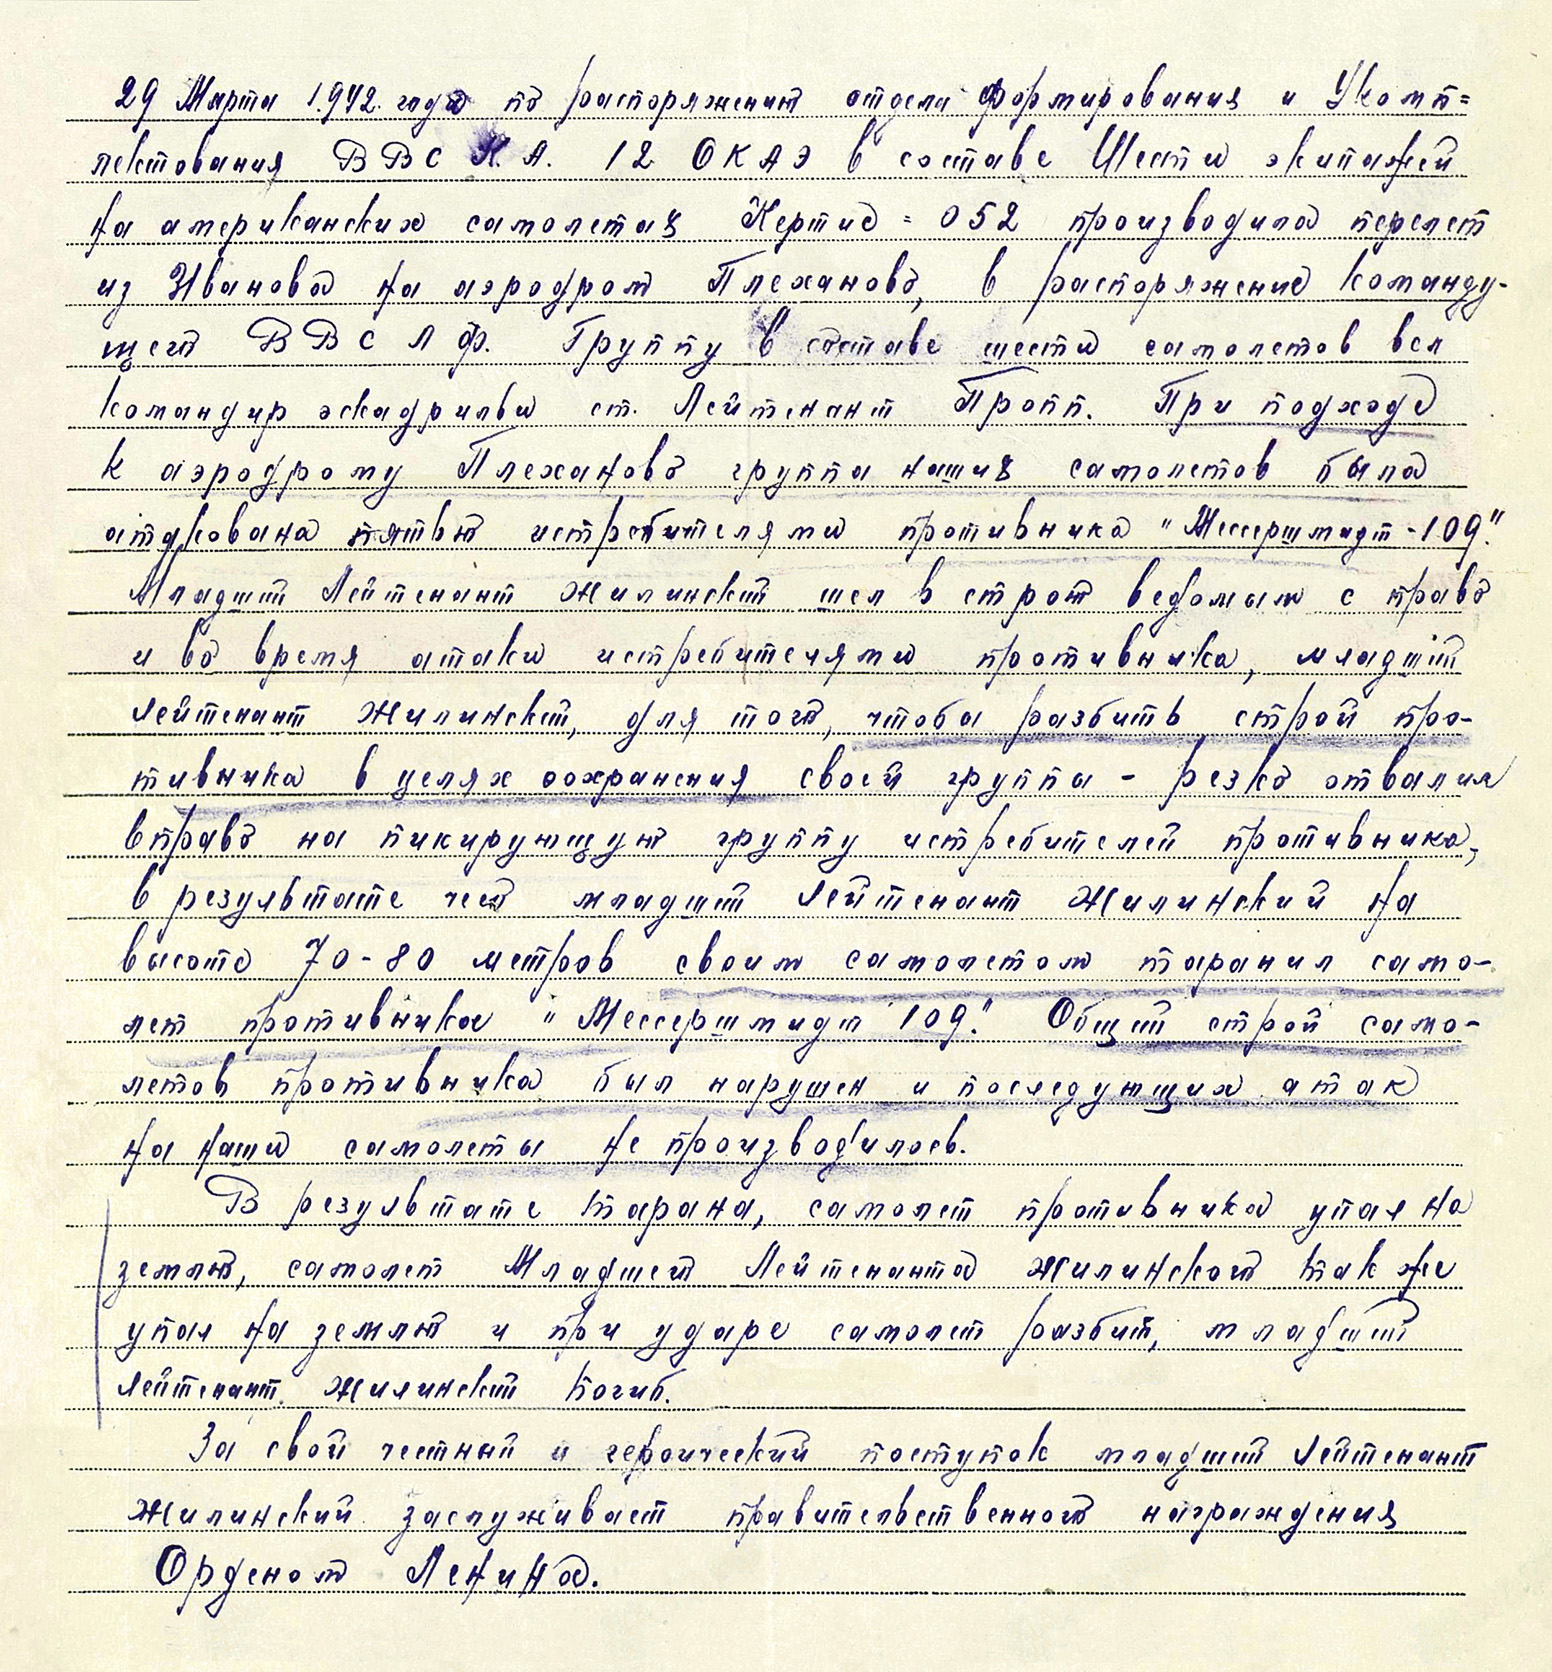 29 Марта 1.942. года по распоряжению отдела Формирования и Укомп=
лектования ВВС К.А. 12 ОКАЭ в составе Шести экипажей
на американских самолетах Кертис = О52 производила перелет
из Иванова на аэродром Плеханово, в распоряжение команду-
щего ВВС ЛФ. Группу в составе шести самолетов вел
командир эскадрильи ст. Лейтенант Пропп. При подходе
к аэродрому Плеханово группа наших самолетов была
атакована пятью истребителями противника "Мессершмидт-109".
Младший Лейтенант Жилинский шел в строю ведомым с право
и во время атаки истребителями противника, младший
лейтенант Жилинский, для того, чтоба разбить строй про-
тивника в целях сохранения своей группы - резко отвалил
вправо на пикирующую группу истребителей противника,
в результате чего младший лейтенант Жилинский на
высоте 70-80 метров своим самолетом таранил само-
лет противника "Мессершмидт 109". Общий строй само-
летов противника был нарушен и последующих атак
на наши самолеты не производилось.
В результате тарана, самолет противника упал на
землю, самолет Младшего Лейтенанта Жилинского так же
упал на землю и при ударе самолет разбит, младший
лейтенант Жилинский погиб.
За свой честный и героический поступок младший лейтенант
Жилинский заслуживает правительственного награждения
Орденом Ленина.